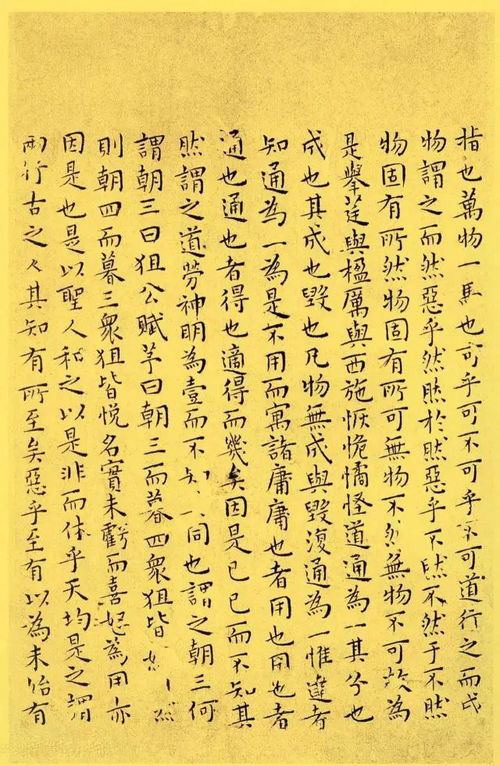 指也萬物一馬也可乎可不可乎不可道行之而成
物謂之而然惡乎然然於然惡乎不然不然于不然
物固有所然物固有所可無物不然無物不可故為
是舉莛與楹厲與西施恢恑憰怪道通為一其分也
成也其成也毀也凡物無成與毀復通為一惟達者
知通為一為是不用而寓諸庸庸也者用也用也者
通也通也者得也適得而幾矣因是已已而不知其
然謂之道勞神明為壹而不知同也謂之朝三何
謂朝三曰狙公賦芧曰朝三而暮四衆狙皆
則朝四而暮三衆狙皆悅名實未虧而喜怒為用亦
因是也是以聖人和之以是非而休乎天均是之謂
兩行古之々其知有所至矣惡乎至有以為未始有